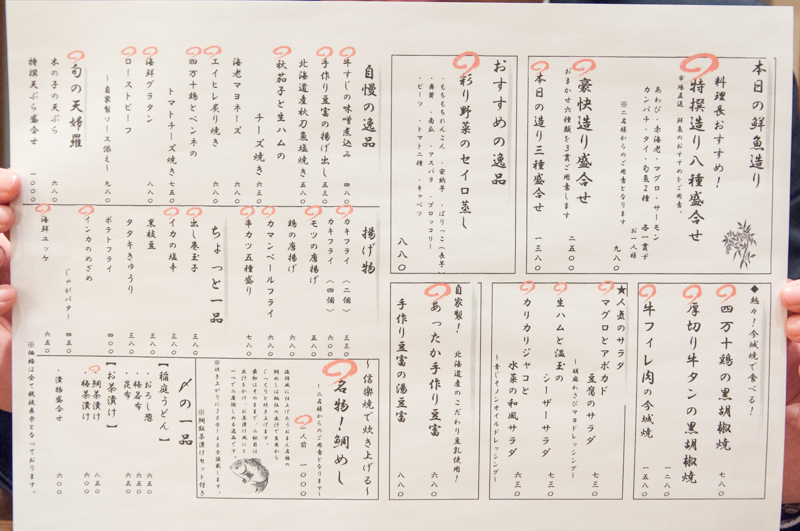 本日の鮮魚造り
料理長おすすめ!
特撰造り八種盛合せ
市場直送 鮮魚のおすすめをご用意。
あわび・赤海老・マグロ・サーモン
カンパチ・タイ・旬魚2種 各一貫ず
お一人様
※二名様からのご用意となります 九八〇
豪快造り盛合せ
おまかせ六種類を3貫ご用意します 二五〇〇
本日の造り三種盛合せ 一三八〇
おすすめの逸品
彩り野菜のセイロ蒸し
・もちもちれんこん ・安納芋 ・ばりっこ ・長芋
・舞茸 ・南瓜 ・アスパラ ・ブロッコリー
・ビーツ ・トマト二種 ・キャベツ
八八〇
自慢の逸品
牛すじの味噌煮込み 四八〇
手作り豆富の揚げ出し 五三〇
北海道産秋刀魚塩焼き 五八〇
秋茄子と生ハムの
チーズ焼き 六三〇
海老マヨネーズ 六三〇
エイヒレ炙り焼き 六八〇
四万十鶏とペンネの
トマトチーズ焼き 七五〇
海鮮グラタン 八八〇
ローストビーフ
〜自家製ソース添え〜 九八〇
旬の天婦羅
木の子の天ぷら 六八〇
特撰天ぷら盛合せ 一〇〇〇
◆熱々!今城焼で食べる!
四万十鶏の黒胡椒焼 七八〇
厚切り牛タンの黒胡椒焼 一二八〇
牛フィレ肉の今城焼 一五八〇
★人気のサラダ
マグロとアボカド
豆腐のサラダ 七三〇
〜胡麻わさびマヨドレッシング〜
生ハムと温玉の
シーザーサラダ 七三〇
カリカリジャコと
水菜の和風サラダ 六三〇
〜青じそノンオイルドレッシング〜
自家製! 北海道産のこだわり豆乳使用!
あったか手作り豆富 六八〇
手作り豆富の湯豆富 八八〇
揚げ物
カキフライ 〈二個〉 三三〇
カキフライ 〈四個〉 六〇〇
モツの唐揚げ 五八〇
鶏の唐揚げ 六八〇
カマンベールフライ 六八〇
串カツ五種盛り 七八〇
ちょっと一品
出し巻玉子 三八〇
イカの塩辛 三八〇
黒枝豆 三八〇
タタキきゅうり 三八〇
ポテトフライ 四〇〇
インカのめざめ
じゃがバター 四五〇
海鮮ユッケ 六五〇
〜信楽焼で炊き上げる〜
名物!鯛めし
〜二名様からのご用意となります〜
一人前 一〇〇〇
※鯛飯茶漬けセット付き
〆の一品
【稲庭うどん】
・おろし葱 六五〇
・梅若布 六五〇
・昆布 六〇〇
【お茶漬け】
鯛茶漬け 八五〇
梅茶漬け 六〇〇
・漬物盛合せ 六〇〇
※価格は全て税抜表示となっております。